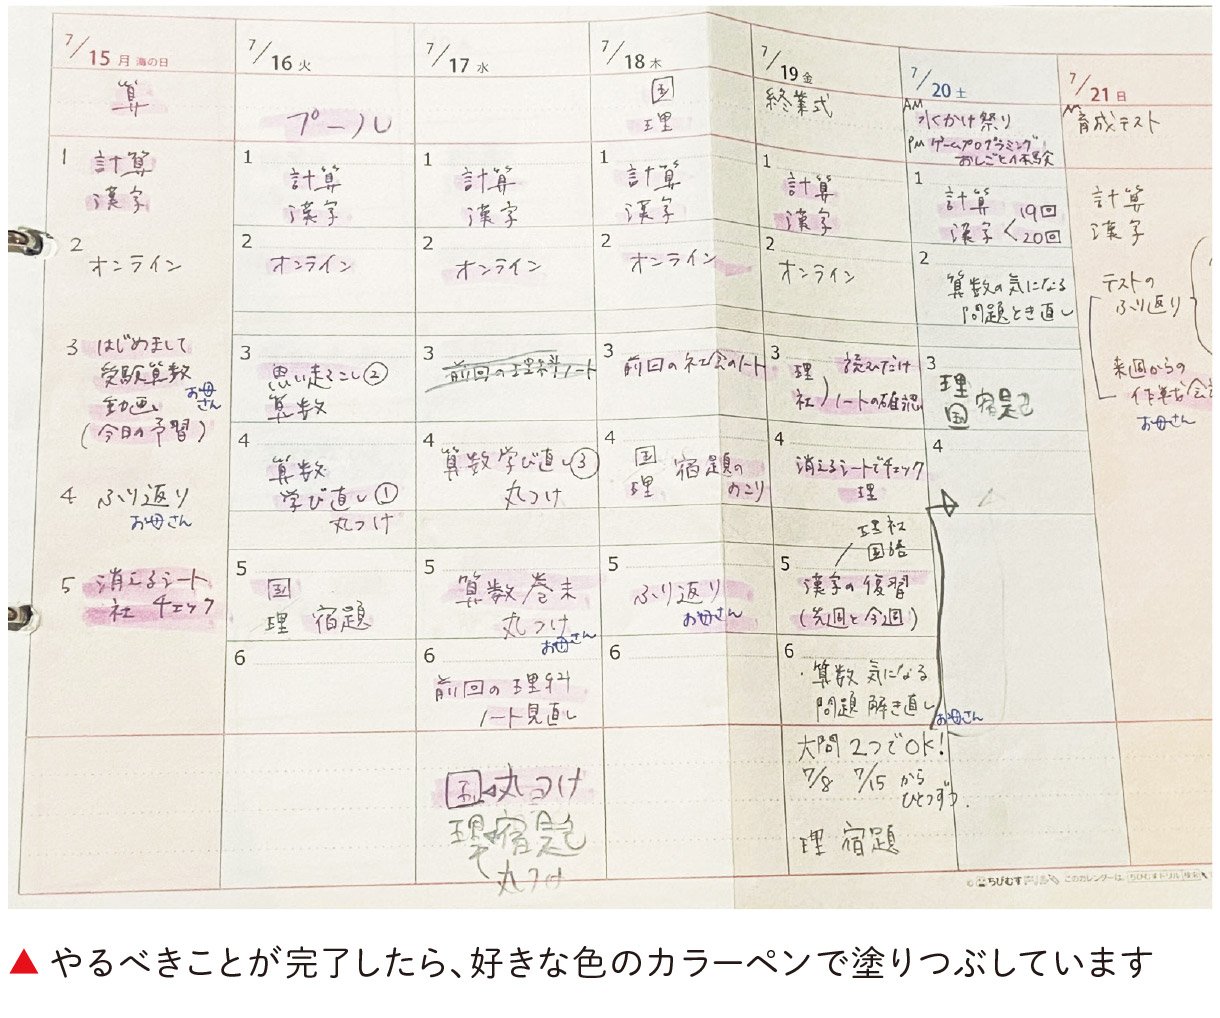 7/15 月 海の日
算
1 計算
漢字
2
オンライン
3 はじめまして
受験算数
動画
お母さん
(今日の予習)
4 ふり返り
お母さん
5 消えるシート
社 チェック
7/16 火
プール
1
計算
漢字
2
オンライン
3
思い起こし②
算数
4
算数
学び直し①
丸つけ
5
国
理 宿題
6
7/17 水
1
計算
漢字
2
オンライン
3
前回の理科ノート
4
算数学び直し③
丸つけ
5
算数 巻末
丸つけ
お母さん
6
前回の理科
ノート見直し
国 丸つけ
理 宿題
丸つけ
7/18 木
国
理
1
計算
漢字
2
オンライン
3
前回の社会のノート
4
国
理 宿題の
のこり
5
ふり返り
お母さん
6
7/19 金
終業式
1
計算
漢字
2
オンライン
3
理
社
読むだけ
ノートの確認
4
消えるシートでチェック
理
理社
国語
5
漢字の復習
(先週と今週)
6
・算数 気になる
問題 解き直し
お母さん
大問 2つでOK!
7/8 7/15 から
ひとつずつ.
理 宿題
7/20 土
AM
水かけ祭り
PM ゲームプログラミング
おしごと体験
1
計算
漢字 19回
20回
2
算数の気になる
問題とき直し
3
理
国 宿題
4
7/21 日
AM
育成テスト
計算
漢字
テストの
ふり返り
来週からの
作戦会
お母さん
© ちびむすドリル このカレンダーは ちびむすドリル 検索
▲ やるべきことが完了したら、好きな色のカラーペンで塗りつぶしています